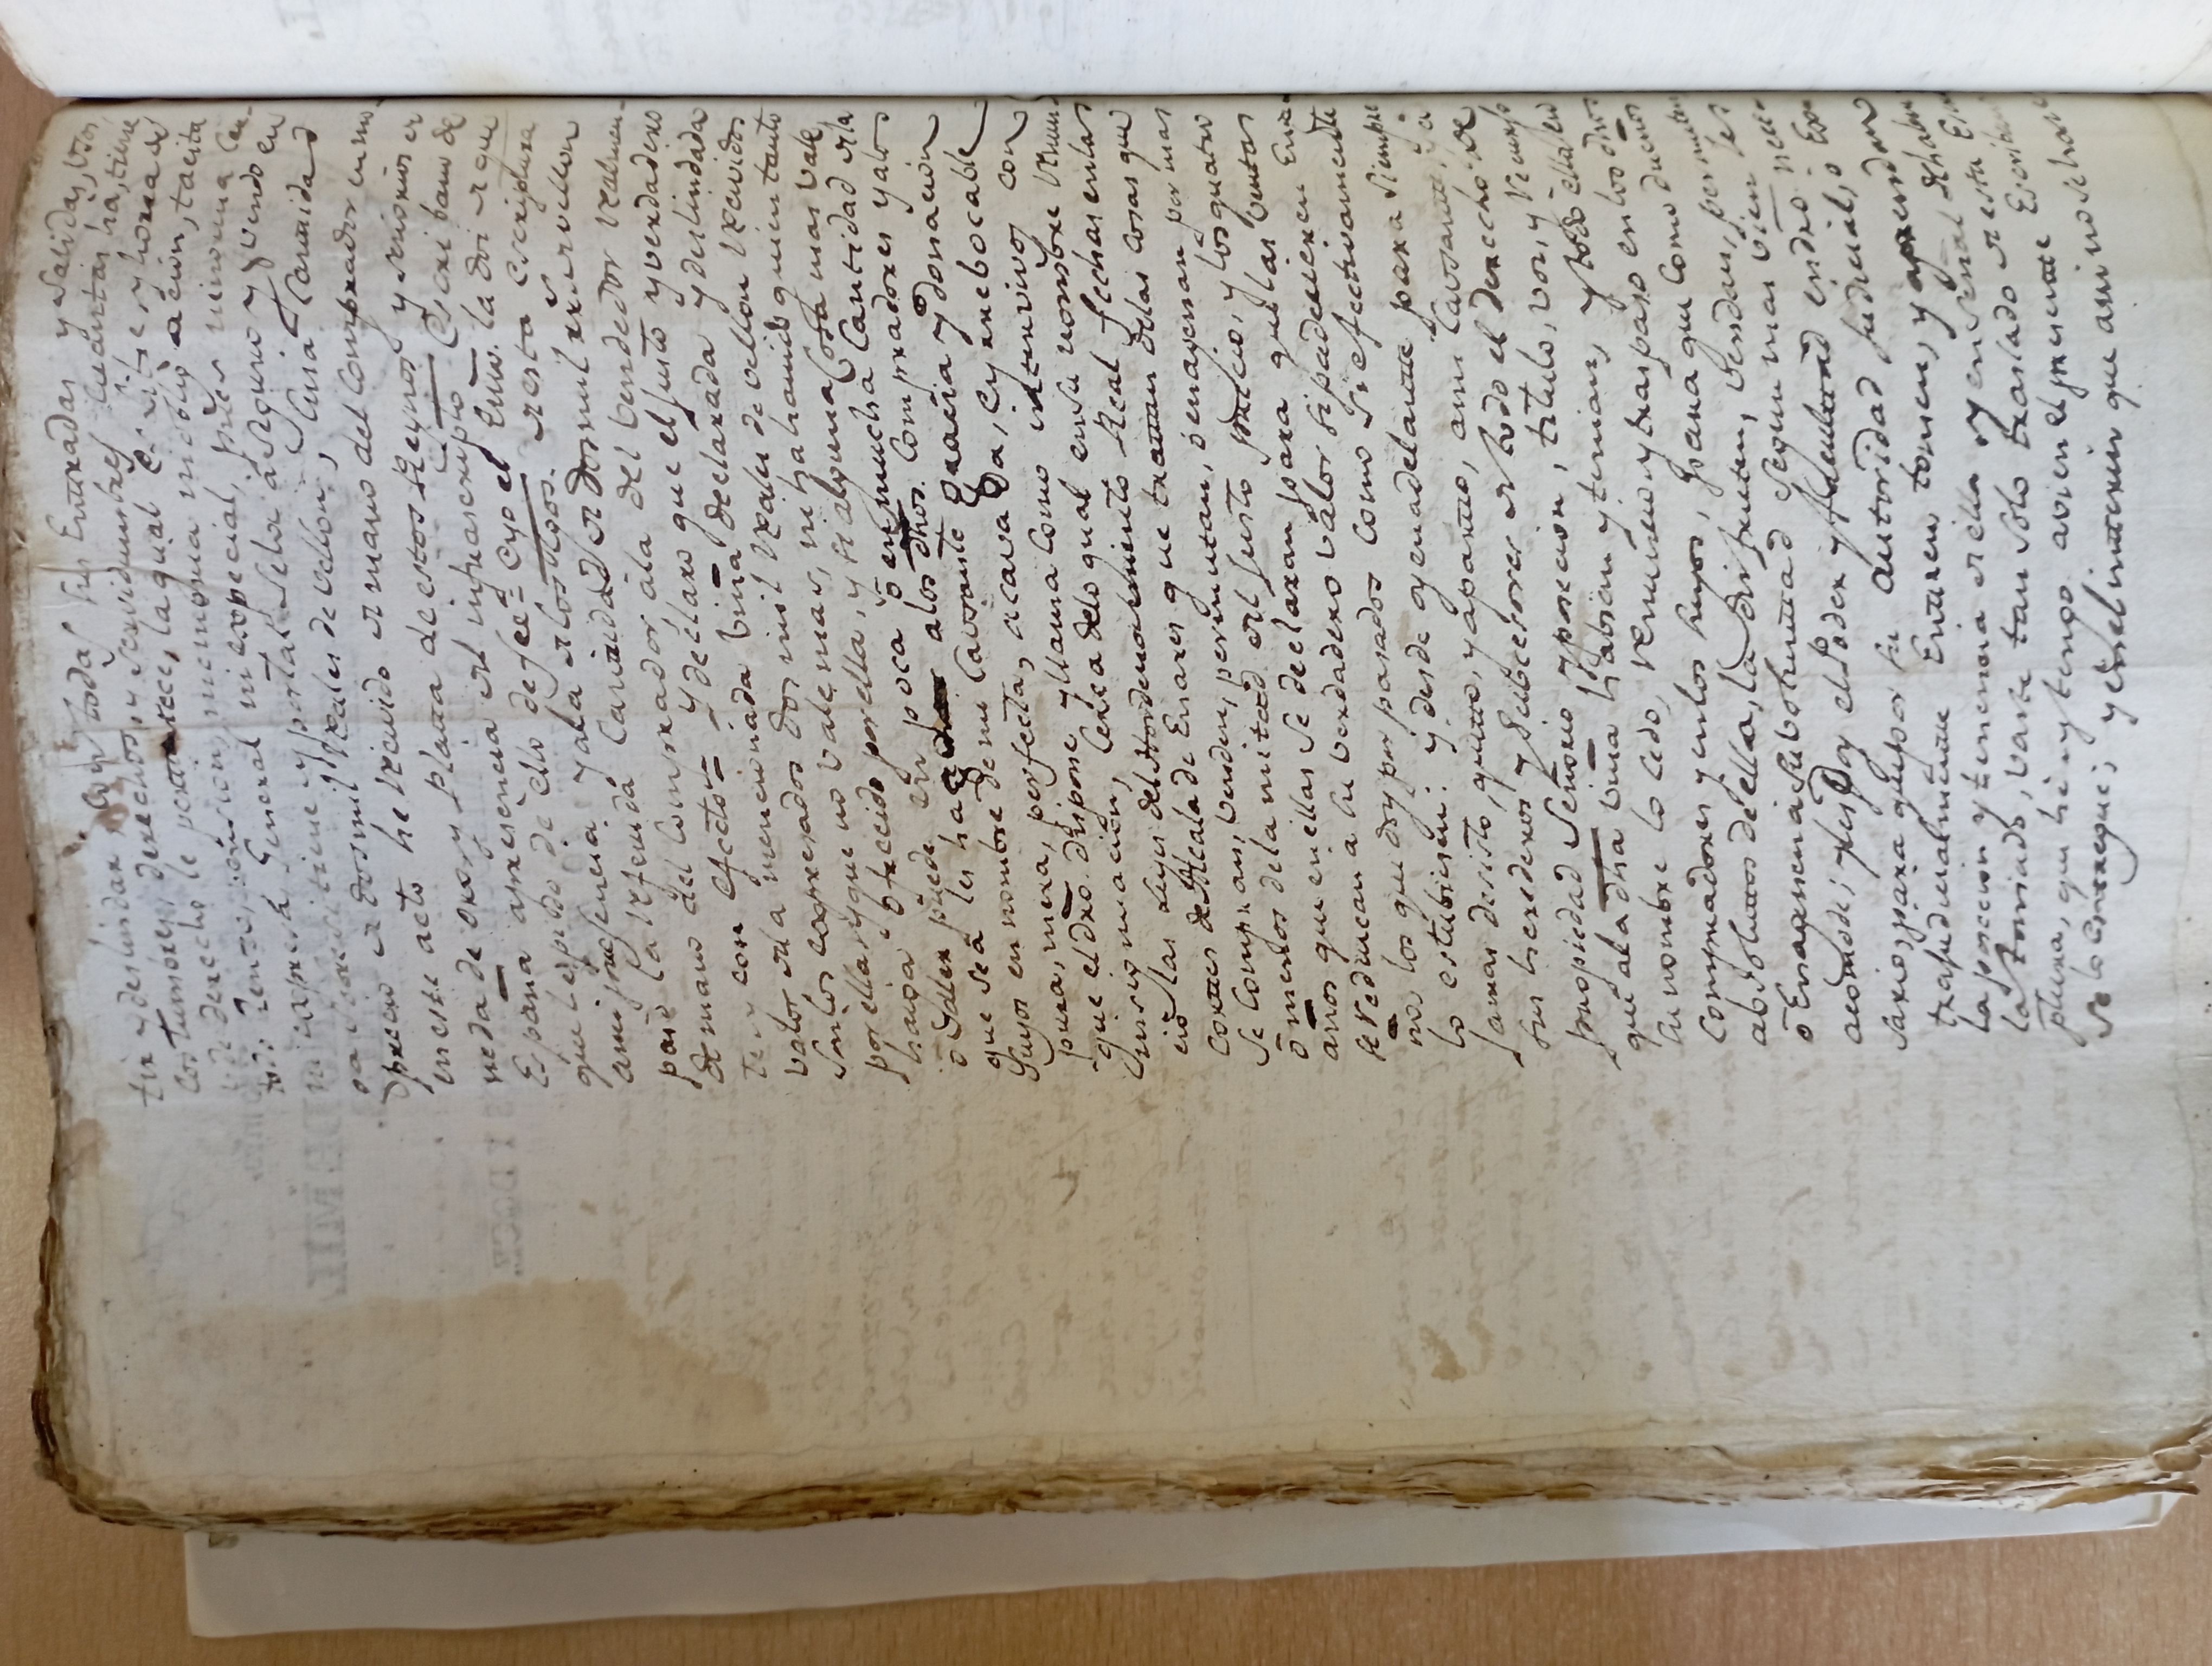 tir y deslindar; con todas sus Entradas y Salidas, Vsos
costumbres, derechos, y servidumbres Cuantas hà, tiene
y de derecho le perttenece, la qual es Libre y horra de
todo Zenso, pension, memoria ni obligacion, tacita
ni expresa, General ni especial, pues ninguna Car-
ga sobresi tiene y por tal Sela aseguro y vendo en
precio de dosmil Reales de vellon, Cuia Canttidad
en este acto he Recivido de mano del Comprador en mo-
neda de oro, y Platta de estos Reynos y señorios de
España apresencia del infrascripto Escribano de
que le pido de ello de fee= Eyo el Essno. la doi de que
ami presencia y ala de los ttgos. de esta escriptura
pasò la Referida Canttidad de dosmil rrs. de vellon
de mano del Comprador, àla del Vendedor Realmen-
te, y con efecto= Y declaro que el Justo y verdadero
valor de la mencionada Viña declarada y deslindada
Son los expresados dos mil Reales de vellon Recividos
por ella, y que no vale mas, ni ha havido quien tanto
haiga ofrecido por ella, y si alguna Cosa mas vale,
ò Valer puede en poca ò en mucha Cantidad de la
que sea les hago alos dhos. Compradores y alos
Suyos en nombre de mi Causante gracia y donacion
pura, mera, perfecta, acavada, e yrrebocable
que el dro. dispone y llama Como intervivos con
insignuacion, Cerca delo qual en su nombre Renun-
ciò las Leyes del Hordenalmiento Real fechas en las
corttes de Alcala de Enares que trattan delas cosas que
se Compran, venden, permutan, ò enagenan por mas
ò menos de la mitad del Justo precio, y los quatro
años que en ellas se declaran para que las ventas
se reduzcan à su verdadero valor si padecieren Enga-
ño, los que doy por pasados como si efectivamente
lo estubiesen: y desde oy en adelantte para siempre
Jamas desisto, quitto, y apartto, ami Causantte, y à
sus herederos y subcesores de todo el derecho de
propiedad Señorio y posecion, titulo, voz, y Recurso
que ala dha viña habian y tenian, y todo ello en
su nombre lo cedo, Renuncio y traspaso en los dhos
Compradores y en los suyos, para que Como dueños
absoluttos de ella, la disfruten, vendan, permuten
ò Enagenen à su Volunttad segun mas vien les
acomode; y les Doy el Poder y facultad en dro. nece-
sario, para que por su autoridad Judicial, ò Ex-
trajudicialmentte Entren, tomen, y aprendan
la posecion y tenencia de ella y en señal de haber
la tomado, vaste tan solo traslado de esta Escri-
ptura, que hè y tengo avien el presentte Escribano
se lo Entregue; y en el intterin que asi no se hace